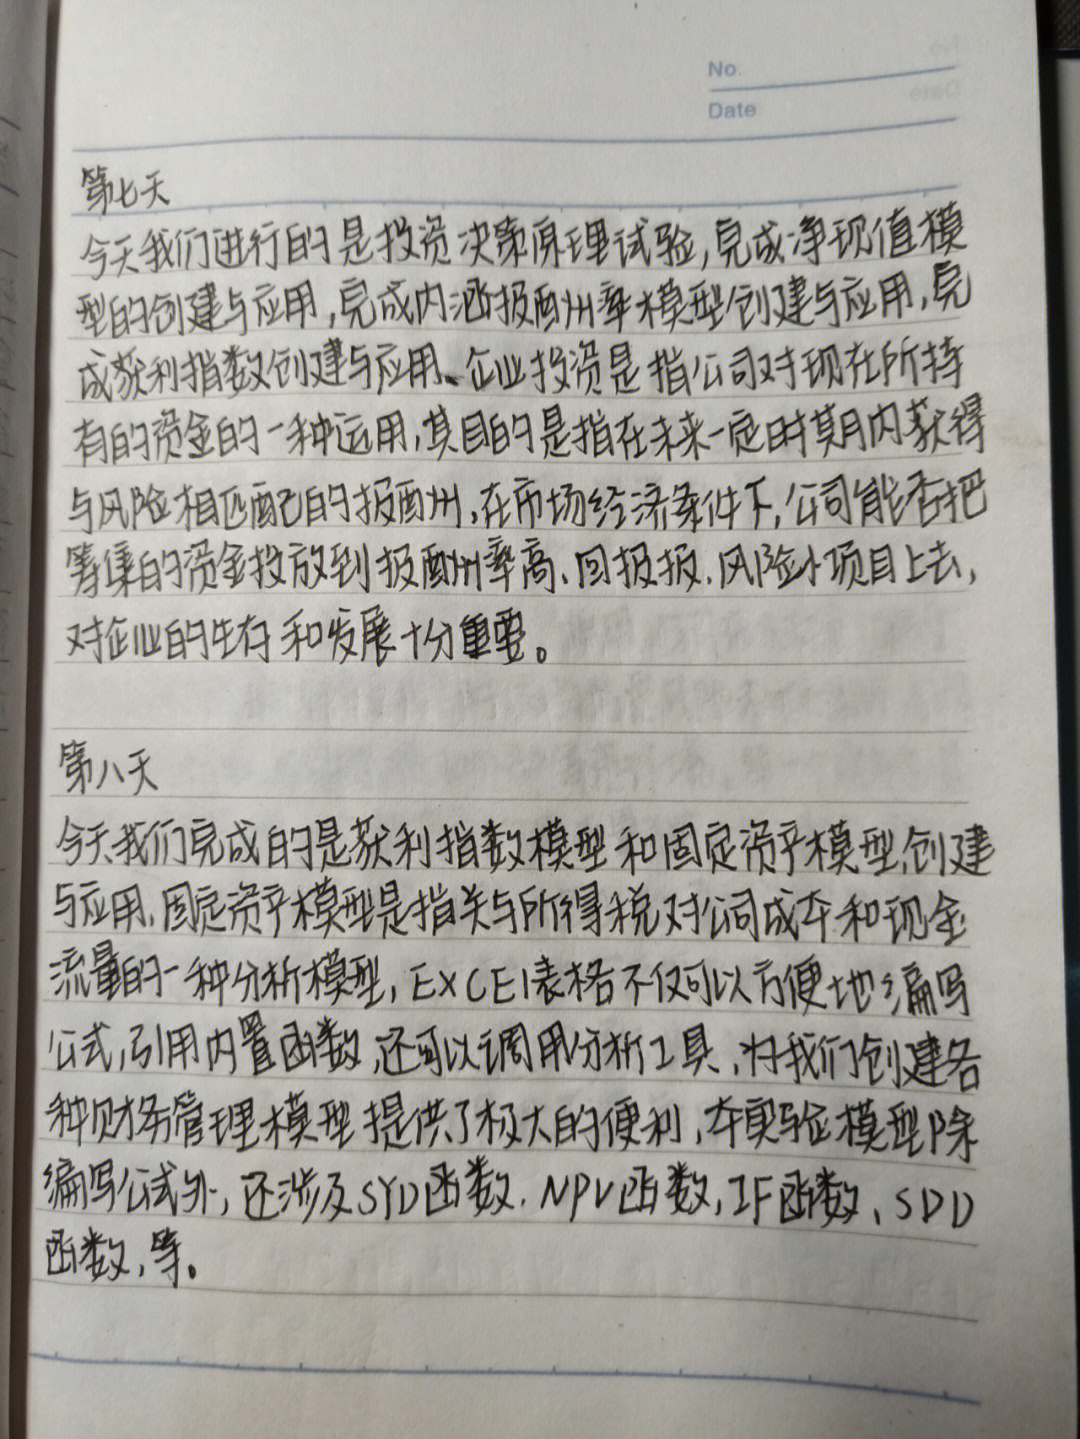 No.
Date
第七天
今天我们进行的是投资决策原理试验,完成净现值模
型的创建与应用,完成内涵报酬率模型创建与应用,完
成获利指数创建与应用、企业投资是指公司对现在所持
有的资金的一种运用,其目的是指在未来一定时期内获得
与风险相匹配的报酬,在市场经济条件下,公司能否把
筹集的资金投放到报酬率高、回报报、风险小项目上去,
对企业的生存和发展十分重要。
第八天
今天我们完成的是获利指数模型和固定资产模型创建
与应用,固定资产模型是指关与所得税对公司成本和现金
流量的一种分析模型,EXCEl表格不仅可以方便地编写
公式,引用内置函数,还可以调用分析工具,为我们创建各
种财务管理模型提供了极大的便利,本实验模型除
编写公式外,还涉及SYD函数、NPV函数,IF函数、SDD
函数,等。